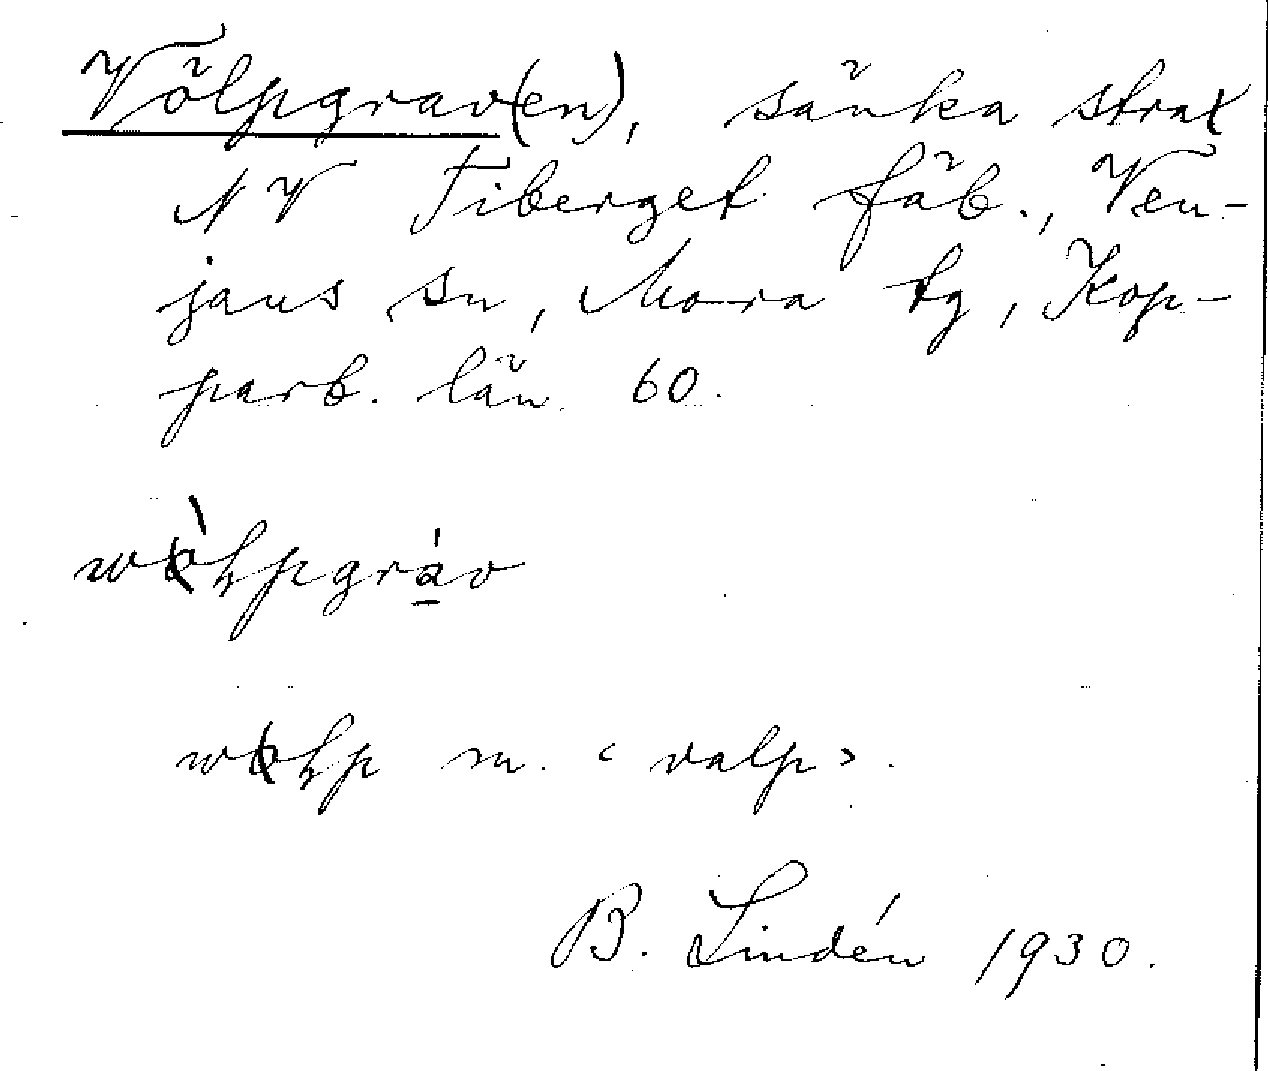 Völpgrav(en), sänka strax
NV Tiberget fäb., Ven-
jans sn, Mora tg, Kop-
parb. län 60.
m. ‹ valp › .
B. Lindén 1930.